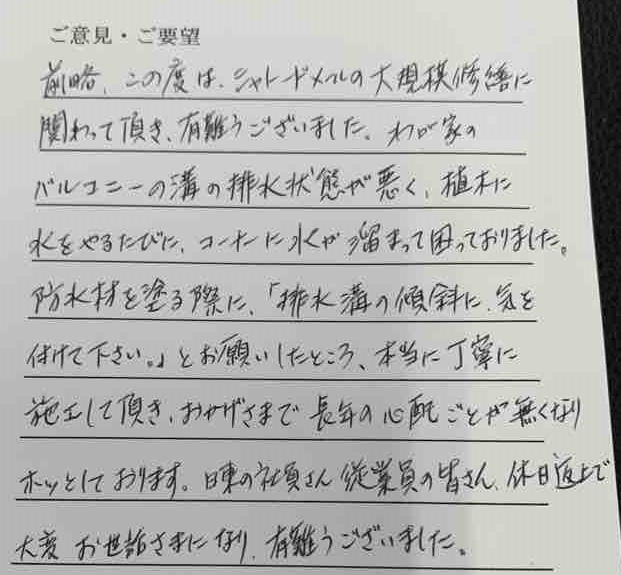 ご意見・ご要望
前略、この度は、シャレードメールの大規模修繕に
関わって頂き、有難うございました。わが家の
バルコニーの溝の排水状態が悪く、植木に
水をやるたびに、コーナーに水が溜まって困っておりました。
防水材を塗る際に、「排水溝の傾斜に、気を
付けて下さい。」とお願いしたところ、本当に丁寧に
施工して頂き、おかげさまで長年の心配ごとが無くなり
ホッとしております。日東の社員さん従業員の皆さん、休日返上で
大変お世話さまになり、有難うございました。